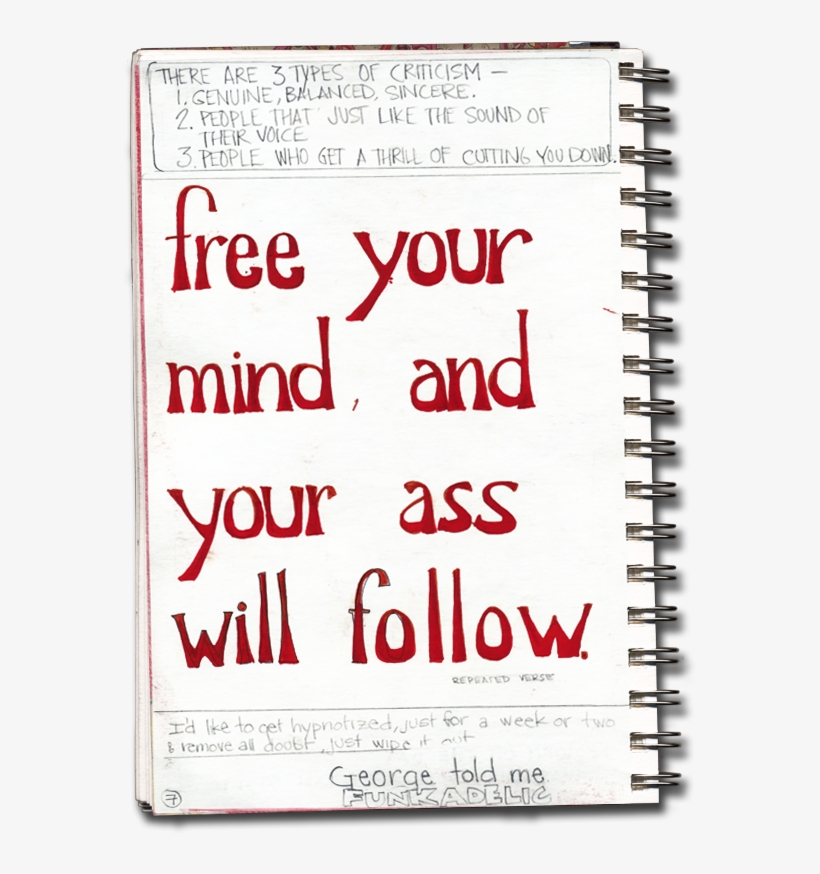 THERE ARE 3 TYPES OF CRITICISM —
1. GENUINE, BALANCED, SINCERE.
2. PEOPLE THAT JUST LIKE THE SOUND OF
THEIR VOICE
3. PEOPLE WHO GET A THRILL OF CUTTING YOU DOWN.
free your
mind, and
your ass
will follow.
REPEATED VERSE
I'd like to get hypnotized, just for a week or two
& remove all doubt, just wipe it out
George told me
FUNKADELIC
7